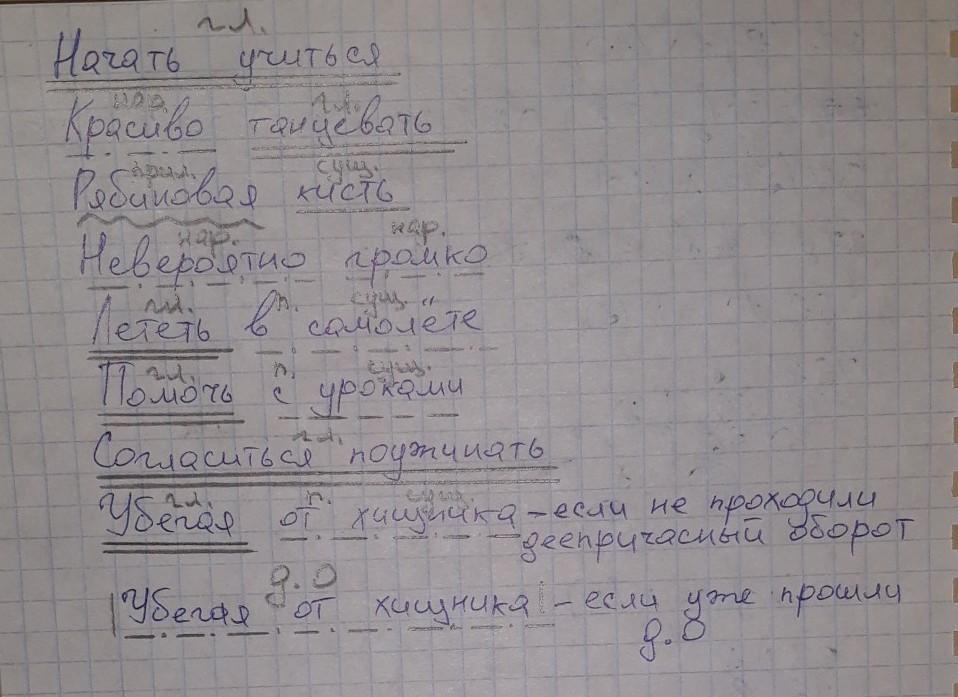 гл.
Начать учиться
нар. гл.
Красиво танцевать
прил. сущ.
Рябиновая кисть
нар. нар.
Невероятно громко
гл. п. сущ.
Лететь в самолёте
гл. п. сущ.
Помочь с уроками
гл.
Согласиться поужинать
гл. п. сущ.
Убегая от хищника - если не проходили
деепричасный оборот
д.О
Убегая от хищника - если уже прошли
д.О